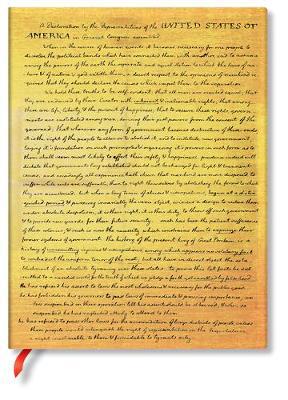 A Declaration by the Representatives of the UNITED STATES OF
AMERICA in General Congress assembled
When in the course of human events it becomes necessary for one people to
dissolve the political bands which have connected them with another, and to assume
among the powers of the earth the separate and equal station to which the laws of na-
ture & of nature's god entitle them, a decent respect to the opinions of mankind
requires that they should declare the causes which impel them to the separation.
We hold these truths to be self-evident; that all men are created equal; that
they are endowed by their Creator with inherent & inalienable rights; that among
these are life, liberty & the pursuit of happiness; that to secure these rights, govern-
ments are instituted among men, deriving their just powers from the consent of the
governed; that whenever any form of government becomes destructive of these ends
it is the right of the people to alter or to abolish it, and to institute new government,
laying it's foundation on such principles & organising it's powers in such form as to
them shall seem most likely to effect their safety & happiness. prudence indeed will
dictate that governments long established should not be changed for light & transient
causes; and accordingly all experience hath shewn that mankind are more disposed to
suffer while evils are sufferable, than to right themselves by abolishing the forms to which
they are accustomed. but when a long train of abuses & usurpations, begun at a
period & pursuing invariably the same object, evinces a design to reduce them
under absolute despotism, it is their right, it is their duty to throw off such government
& to provide new guards for their future security. such has been the patient sufferance
of these colonies; & such is now the necessity which constrains them to expunge their
former systems of government. the history of the present king of Great Britain is a
history of unremitting injuries & usurpations, among which appears no solitary fact
to contradict the uniform tenor of the rest, but all have in direct object the es-
tablishment of an absolute tyranny over these states. to prove this let facts be sub-
mitted to a candid world, for the truth of which we pledge a faith yet unsullied by falsehood
He has refused his assent to laws the most wholesome & necessary for the public good.
he has forbidden his governors to pass laws of immediate & pressing importance, un-
less suspended in their operation till his assent should be obtained; & when so
suspended he has neglected utterly to attend to them.
he has refused to pass other laws for the accommodation of large districts of people, unless
those people would relinquish the right of representation in the legislature,
a right inestimable to them & formidable to tyrants only.